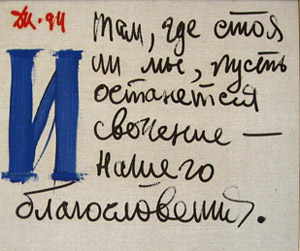 Ж.94
И там, где стоя
ли мы, пусть
останется
свечение —
нашего
благословения.